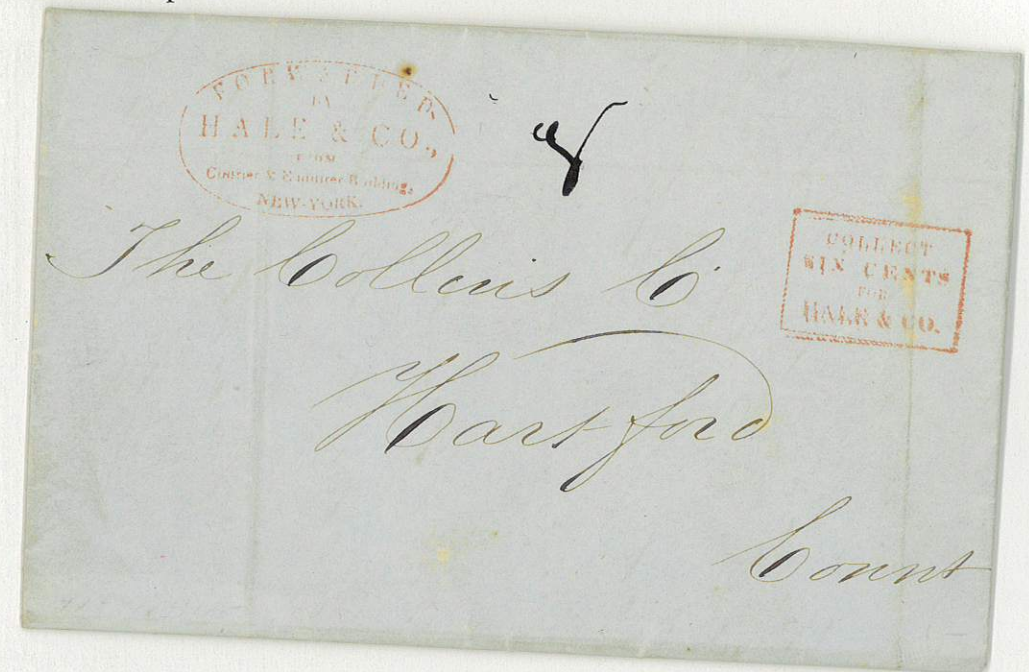 FORWARDED
BY
HALE & CO.,
FROM
Courier & Enquirer Building,
NEW-YORK.
8
COLLECT
SIX CENTS
FOR
HALE & CO.
The Collins Co
Hartford
Connt